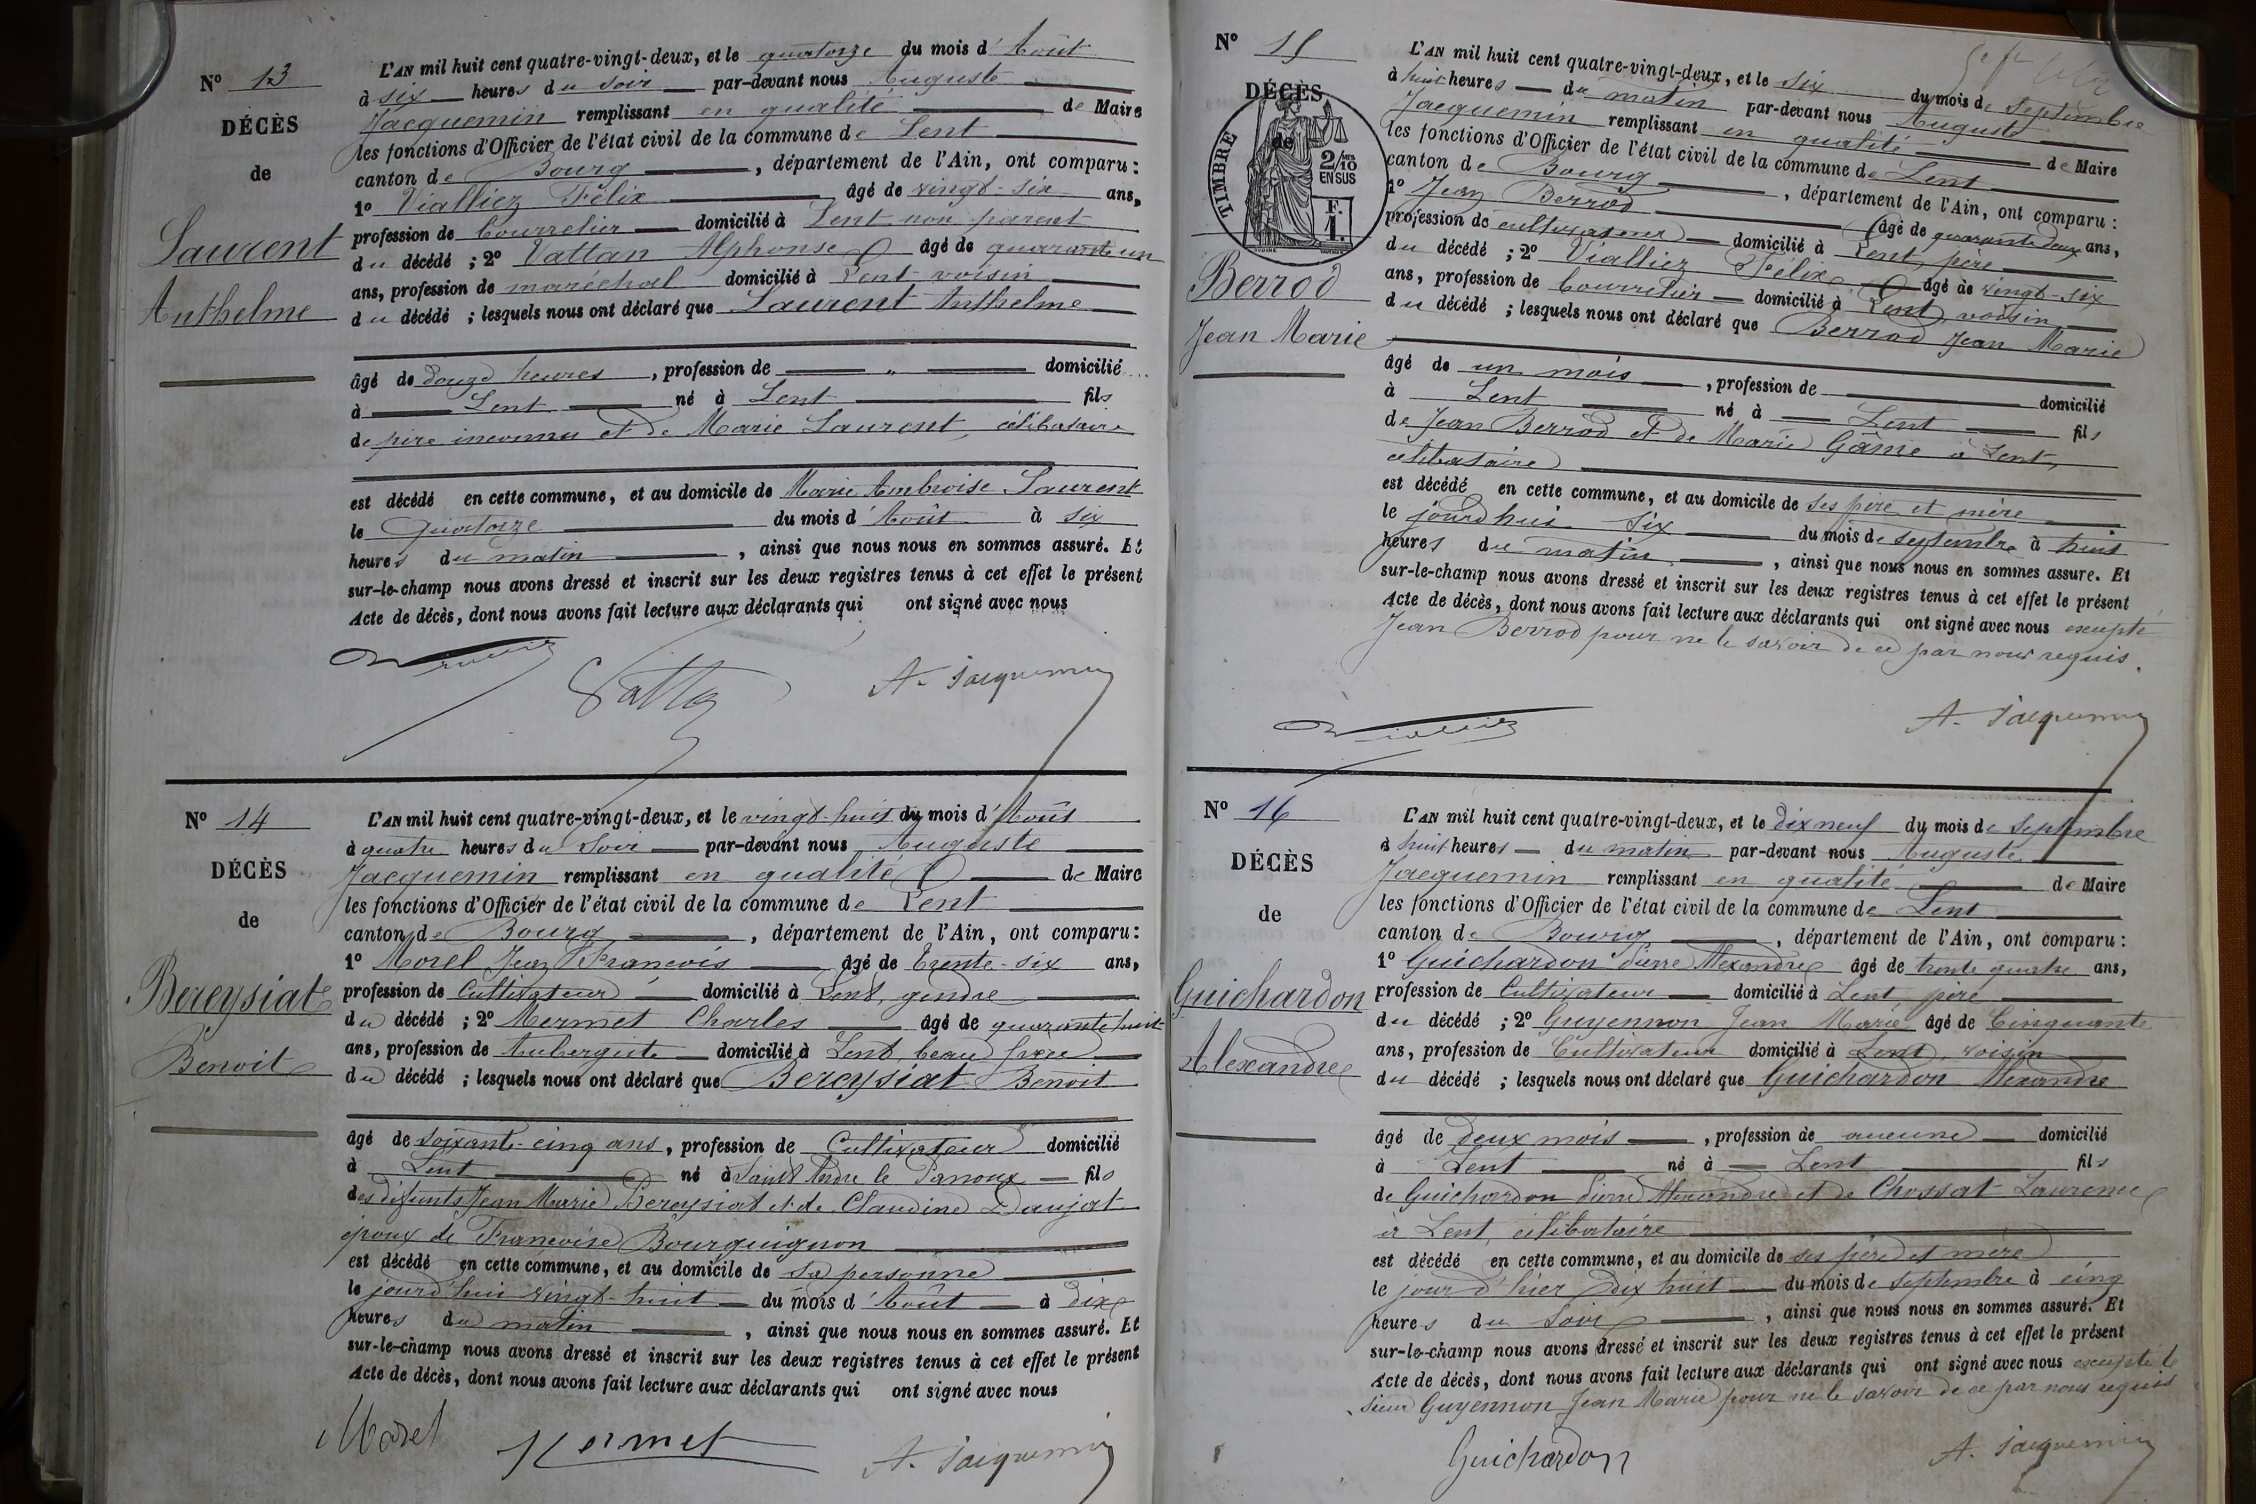 N° 13
DÉCÈS
de
Laurent
Anthelme
L'AN mil huit cent quatre-vingt-deux, et le quatorze du mois d'Août
à six heures du soir par-devant nous Auguste
Jacquemin remplissant en qualité de Maire
les fonctions d'Officier de l'état civil de la commune de Lent
canton de Bourg, département de l'Ain, ont comparu :
1° Vialliez Félix âgé de vingt-six ans,
profession de bourrelier domicilié à Lent non parent
du décédé ; 2° Vattan Alphonse âgé de quarante un
ans, profession de maréchal domicilié à Lent voisin
du décédé ; lesquels nous ont déclaré que Laurent Anthelme
âgé de douze heures, profession de " domicilié
à Lent né à Lent fils
de père inconnu et de Marie Laurent, célibataire
est décédé en cette commune, et au domicile de Marie Ambroise Laurent
le Quatorze du mois d'Août à six
heures du matin, ainsi que nous nous en sommes assuré. Et
sur-le-champ nous avons dressé et inscrit sur les deux registres tenus à cet effet le présent
Acte de décès, dont nous avons fait lecture aux déclarants qui ont signé avec nous
A. Jacquemin
N° 14
DÉCÈS
de
Bereysiat
Benoit
L'AN mil huit cent quatre-vingt-deux, et le vingt-huit du mois d'Août
à quatre heures du soir par-devant nous Auguste
Jacquemin remplissant en qualité de Maire
les fonctions d'Officier de l'état civil de la commune de Lent
canton de Bourg, département de l'Ain, ont comparu :
1° Morel Jean François âgé de trente-six ans,
profession de Cultivateur domicilié à Lent, gendre
du décédé ; 2° Mermet Charles âgé de quarante huit
ans, profession de Aubergiste domicilié à Lent, beau frère
du décédé ; lesquels nous ont déclaré que Bereysiat Benoit
âgé de soixante-cinq ans, profession de Cultivateur domicilié
à Lent né à Saint André le Panoux fils
des défunts Jean Marie Bereysiat et de Claudine Daujat
époux de Françoise Bourguignon
est décédé en cette commune, et au domicile de sa personne
le jourd'hui vingt-huit du mois d'Août à dix
heures du matin, ainsi que nous nous en sommes assuré. Et
sur-le-champ nous avons dressé et inscrit sur les deux registres tenus à cet effet le présent
Acte de décès, dont nous avons fait lecture aux déclarants qui ont signé avec nous
Morel Mermet A. Jacquemin
N° 15
DÉCÈS
de
TIMBRE
2/10 EN SUS
F. 1.
Berrod
Jean Marie
L'AN mil huit cent quatre-vingt-deux, et le six du mois de Septembre
à huit heures du matin par-devant nous Auguste
Jacquemin remplissant en qualité de Maire
les fonctions d'Officier de l'état civil de la commune de Lent
canton de Bourg, département de l'Ain, ont comparu :
1° Jean Berrod âgé de quarante deux ans,
profession de cultivateur domicilié à Lent, père
du décédé ; 2° Vialliez Félix âgé de vingt-six
ans, profession de bourrelier domicilié à Lent, voisin
du décédé ; lesquels nous ont déclaré que Berrod Jean Marie
âgé de un mois, profession de domicilié
à Lent né à Lent fils
de Jean Berrod et de Marie Gâme à Lent,
célibataire
est décédé en cette commune, et au domicile de ses père et mère
le jourd'hui six du mois de septembre à huit
heures du matin, ainsi que nous nous en sommes assuré. Et
sur-le-champ nous avons dressé et inscrit sur les deux registres tenus à cet effet le présent
Acte de décès, dont nous avons fait lecture aux déclarants qui ont signé avec nous excepté
Jean Berrod pour ne le savoir de ce par nous requis.
A. Jacquemin
N° 16
DÉCÈS
de
Guichardon
Alexandre
L'AN mil huit cent quatre-vingt-deux, et le dix neuf du mois de Septembre
à huit heures du matin par-devant nous Auguste
Jacquemin remplissant en qualité de Maire
les fonctions d'Officier de l'état civil de la commune de Lent
canton de Bourg, département de l'Ain, ont comparu :
1° Guichardon Pierre Alexandre âgé de trente quatre ans,
profession de Cultivateur domicilié à Lent père
du décédé ; 2° Guyennon Jean Marie âgé de Cinquante
ans, profession de Cultivateur domicilié à Lent, voisin
du décédé ; lesquels nous ont déclaré que Guichardon Alexandre
âgé de deux mois, profession de aucune domicilié
à Lent né à Lent fils
de Guichardon Pierre Alexandre et de Chossat Laurence
à Lent, célibataire
est décédé en cette commune, et au domicile de ses père et mère
le jour d'hier dix huit du mois de septembre à cinq
heures du soir, ainsi que nous nous en sommes assuré. Et
sur-le-champ nous avons dressé et inscrit sur les deux registres tenus à cet effet le présent
Acte de décès, dont nous avons fait lecture aux déclarants qui ont signé avec nous excepté le
sieur Guyennon Jean Marie pour ne le savoir de ce par nous requis
Guichardon A. Jacquemin